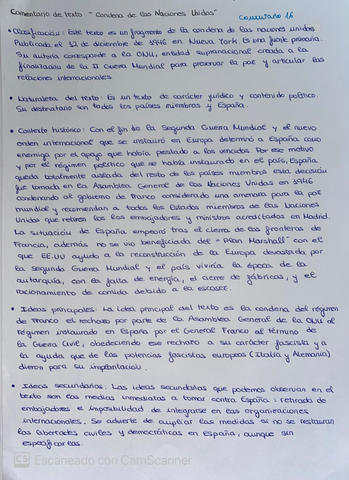 Comentario de texto "Condena de las Naciones Unidas"
COMENTARIO 16
• Clasificación: Este texto es un fragmento de la condena de las naciones unidas
Publicada el 12 de diciembre de 1946 en Nueva York. Es una fuente primaria.
Su autoría corresponde a la ONU, entidad supranacional creada a la
finalización de la II Guerra Mundial para preservar la paz y articular las
relaciones internacionales.
• Naturaleza del texto: Es un texto de carácter jurídico y contenido político.
Su destinatario son todos los países miembros y España.
• Contexto histórico: Con el fin de la Segunda Guerra Mundial y el nuevo
orden internacional que se instauró en Europa determinó a España como
enemiga por el apoyo que había prestado a los vencidos. Por ese motivo
y por el régimen político que se había instaurado en el país, España
queda totalmente aislada del resto de países miembros esta decisión
fue tomada en la Asamblea General de las Naciones Unidas en 1946
condenando al gobierno de Franco considerado una amenaza para la paz
mundial y recomiendan a todos los Estados miembros de las Naciones
Unidas que retiren los embajadores y ministros acreditados en Madrid.
La situación de España empeoró tras el cierre de las fronteras de
Francia, además no se vio beneficiada del "Plan Marshall" con el
que EE.UU ayudó a la reconstrucción de la Europa devastada por
la segunda Guerra Mundial y el país viviría la época de la
autarquía, con la falta de energía, el cierre de fábricas, y el
racionamiento de comida debido a la escasez.
• Ideas principales: La idea principal del texto es la condena del régimen
de Franco el rechazo por parte de la Asamblea General de la ONU al
régimen instaurado en España por el General Franco al término de
la Guerra Civil, obedeciendo ese rechazo a su carácter fascista y a
la ayuda que de las potencias fascistas europeas (Italia y Alemania)
dieron para su implantación.
• Ideas secundarias: Las ideas secundarias que podemos observar en el
texto son las medidas inmediatas a tomar contra España: retirada de
embajadores e imposibilidad de integrarse en las organizaciones
internacionales. Se advierte de ampliar las medidas si no se restauran
las libertades civiles y democráticas en España, aunque sin
especificarlas
CS Escaneado con CamScanner